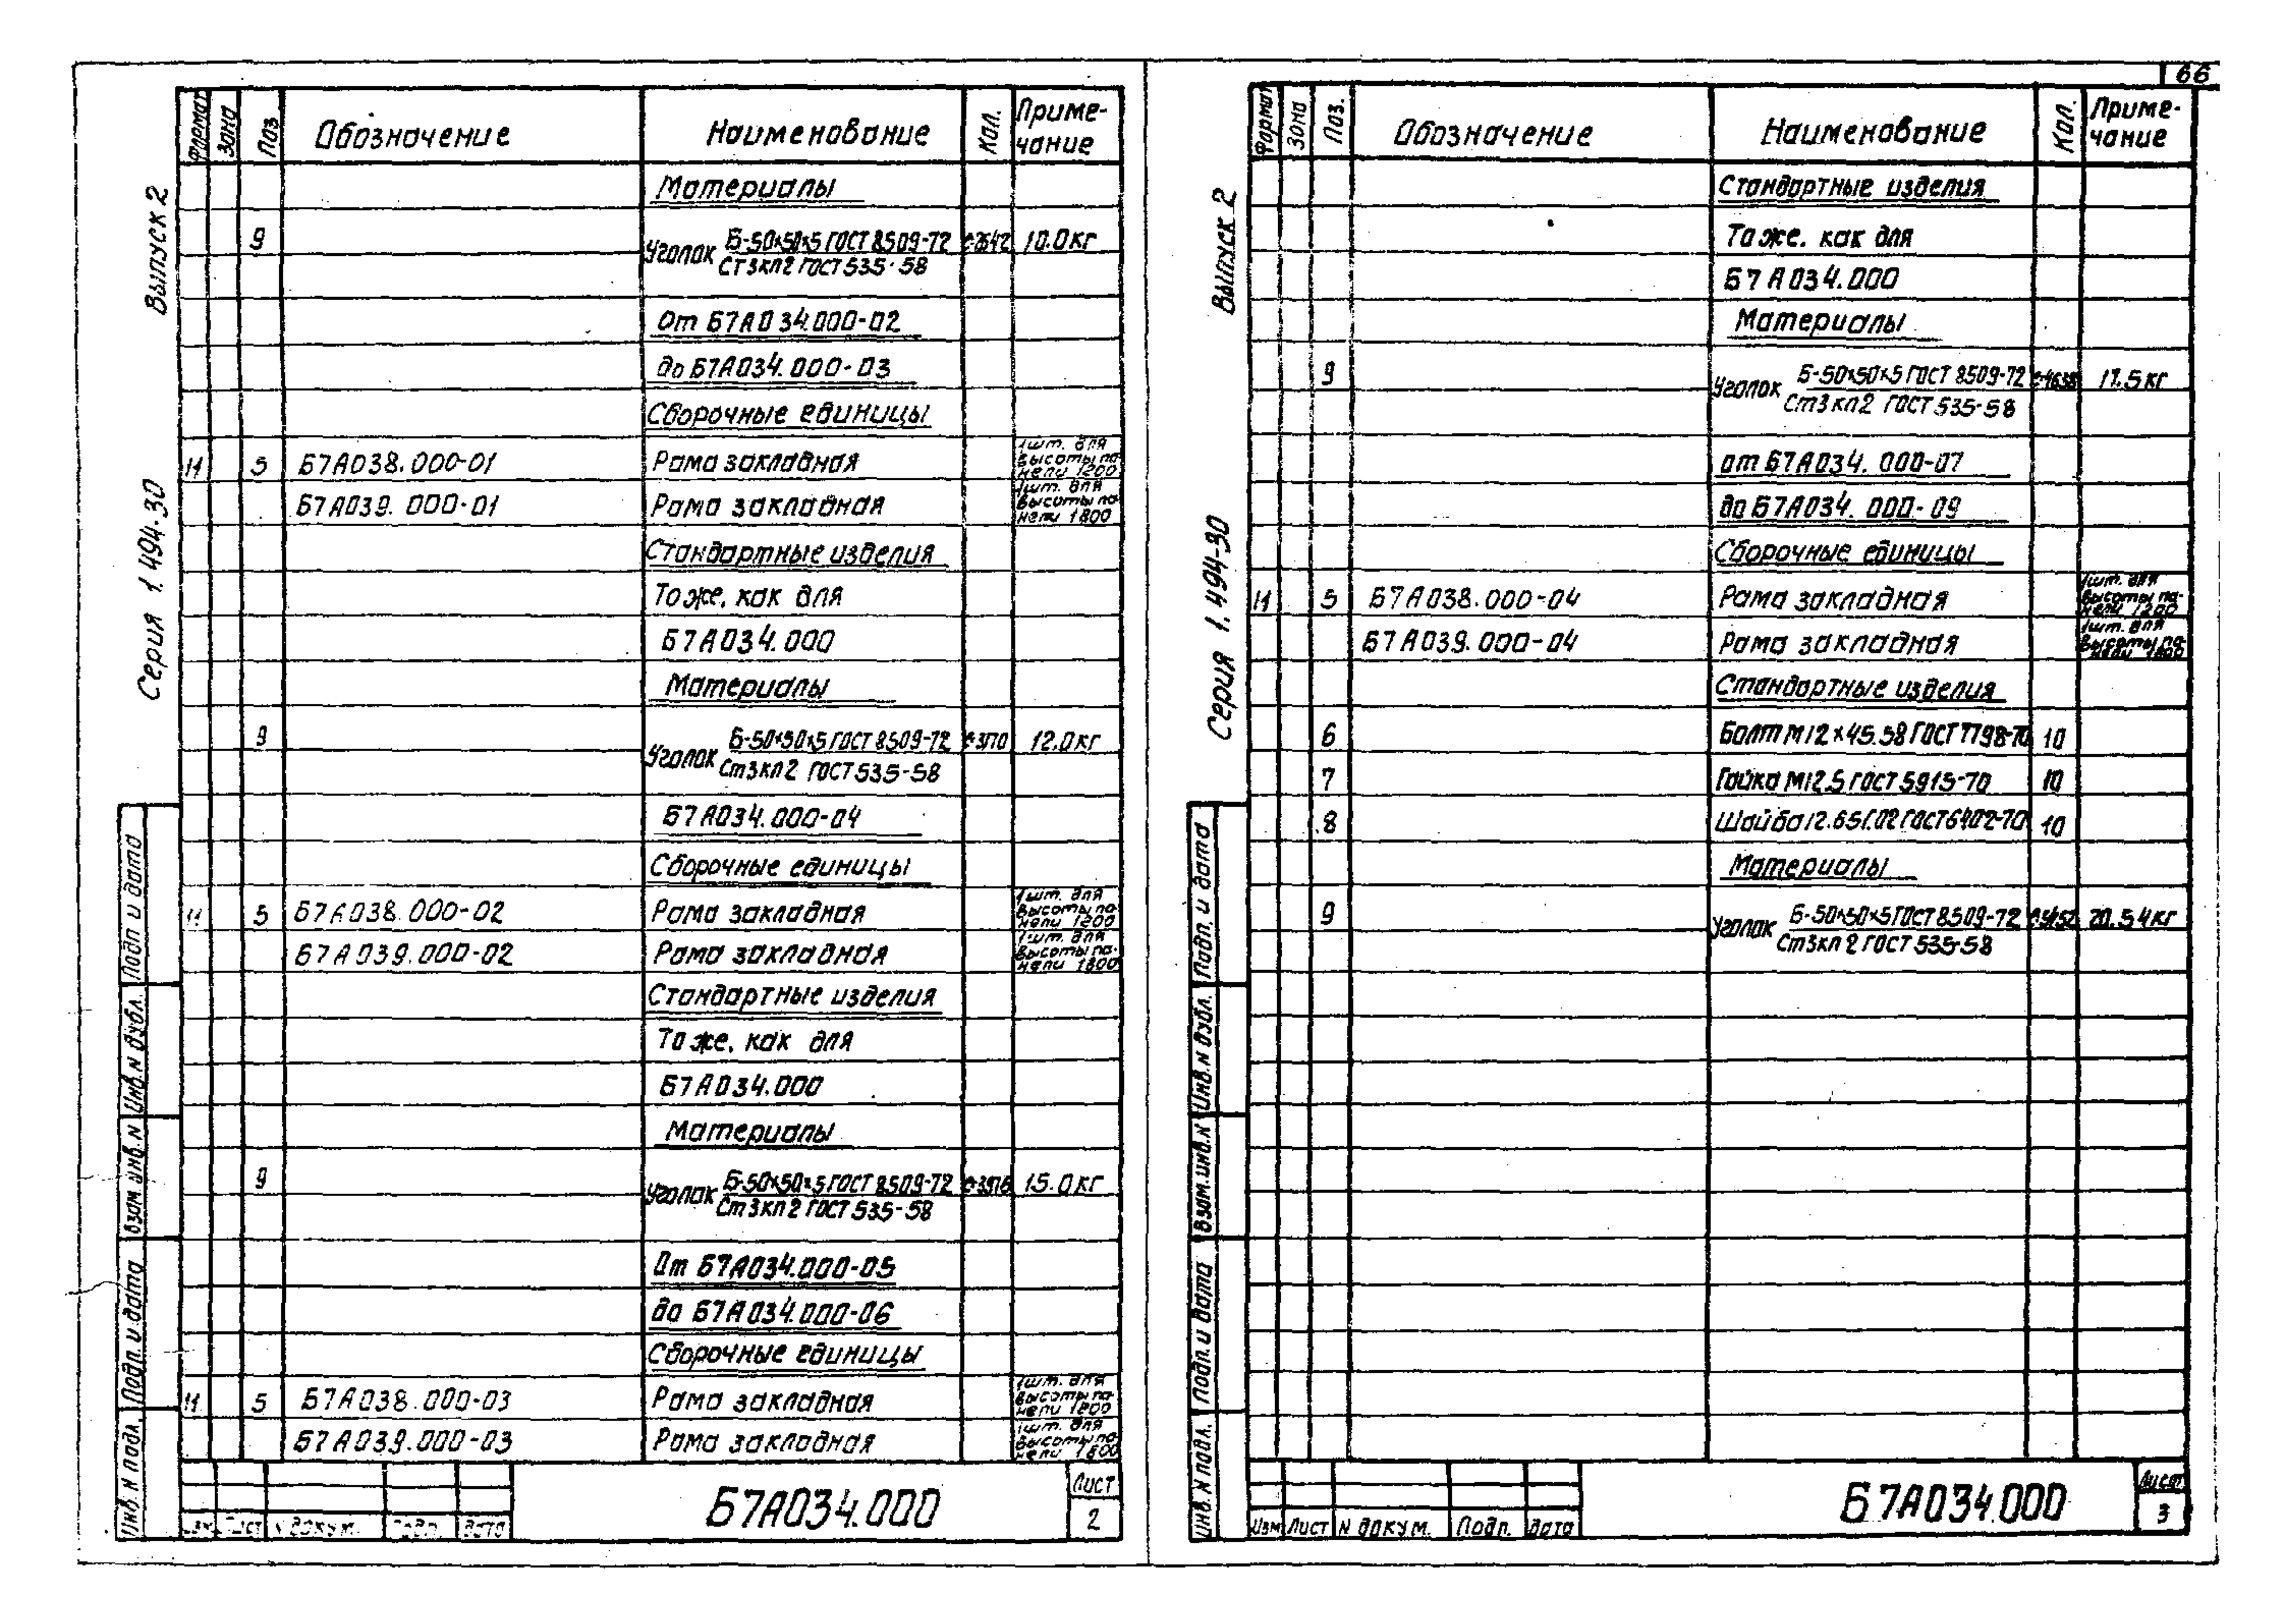 66
Выпуск 2
Серия 1.494-30
Формат Зона Поз Обозначение Наименование Кол. Приме-
чание
Материалы
9 Уголок Б-50×50×5 ГОСТ 8509-72 10.0кг
Ст3кп2 ГОСТ 535-58
От Б7А034.000-02
до Б7А034.000-03
Сборочные единицы
11 5 Б7А038.000-01 Рама закладная 1шт. для
высоты па-
нели 1200
Б7А039.000-01 Рама закладная 1шт. для
высоты па-
нели 1800
Стандартные изделия
То же, как для
Б7А034.000
Материалы
9 Уголок Б-50×50×5 ГОСТ 8509-72 12.0кг
Ст3кп2 ГОСТ 535-58
Б7А034.000-04
Сборочные единицы
11 5 Б7А038.000-02 Рама закладная 1шт. для
высоты па-
нели 1200
Б7А039.000-02 Рама закладная 1шт. для
высоты па-
нели 1800
Стандартные изделия
То же, как для
Б7А034.000
Материалы
9 Уголок Б-50×50×5 ГОСТ 8509-72 15.0кг
Ст3кп2 ГОСТ 535-58
От Б7А034.000-05
до Б7А034.000-06
Сборочные единицы
11 5 Б7А038.000-03 Рама закладная 1шт. для
высоты па-
нели
Б7А039.000-03 Рама закладная 1шт. для
высоты па-
нели 1800
Подп и дата
Инв. N дубл.
Взам. инв. N
Подп. и дата
Инв. N подл.
Изм Лист N докум. Подп. Дата
Б7А034.000
Лист
2
Выпуск 2
Серия 1.494-30
Формат Зона Поз. Обозначение Наименование Кол. Приме-
чание
Стандартные изделия
То же, как для
Б7А034.000
Материалы
9 Уголок Б-50×50×5 ГОСТ 8509-72 17.5кг
Ст3кп2 ГОСТ 535-58
от Б7А034.000-07
до Б7А034.000-09
Сборочные единицы
11 5 Б7А038.000-04 Рама закладная 1шт. для
высоты па-
нели 1200
Б7А039.000-04 Рама закладная 1шт. для
высоты па-
нели 1800
Стандартные изделия
6 Болт М12×45.58 ГОСТ 7798-70 10
7 Гайка М12.5 ГОСТ 5915-70 10
8 Шайба 12.65Г.02 ГОСТ 6402-70 10
Материалы
9 Уголок Б-50×50×5 ГОСТ 8509-72 20.54кг
Ст3кп2 ГОСТ 535-58
Подп. и дата
Инв. N дубл.
Взам. инв. N
Подп. и дата
Инв. N подл.
Изм Лист N докум. Подп. Дата
Б7А034.000
Лист
3